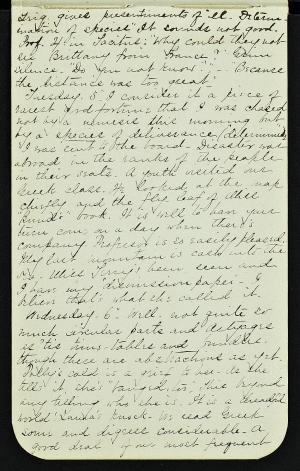 Trig. gives presentiments of ill. Determ-
ination of species. It sounds not good.
Prof. H in Tacitus: "Why could they not
see Brittany from France?" Grim
silence. "Do you not know?" - "Because
the distance was too great."
Tuesday, 5. I consider it a piece of
rarest good fortune that I was chased
not by a nemesis this morning but
by a species of deliverance (determined)
I was sent to the board. Disaster was
abroad in the ranks of the people
in their seats. A youth visited our
Greek class. He looked at the map
chiefly and the fly leaf of Miss
book. It is well to have your
turn come on a day when there's
company. Professor is so easily pleased.
My last mountain is cast into the
sea. Miss Terry's been seen and
I have my "dismission paper." I
that's what she called it.
Wednesday. 6. Well, not quite so
much circular parts and
as
though these are abstractions as yet.
cold is a to use. As she
tells it, she's This beyond
my telling why she is. It is a dreadful
world. We read Greek
some and digress considerable. A
good deal of our most frequent